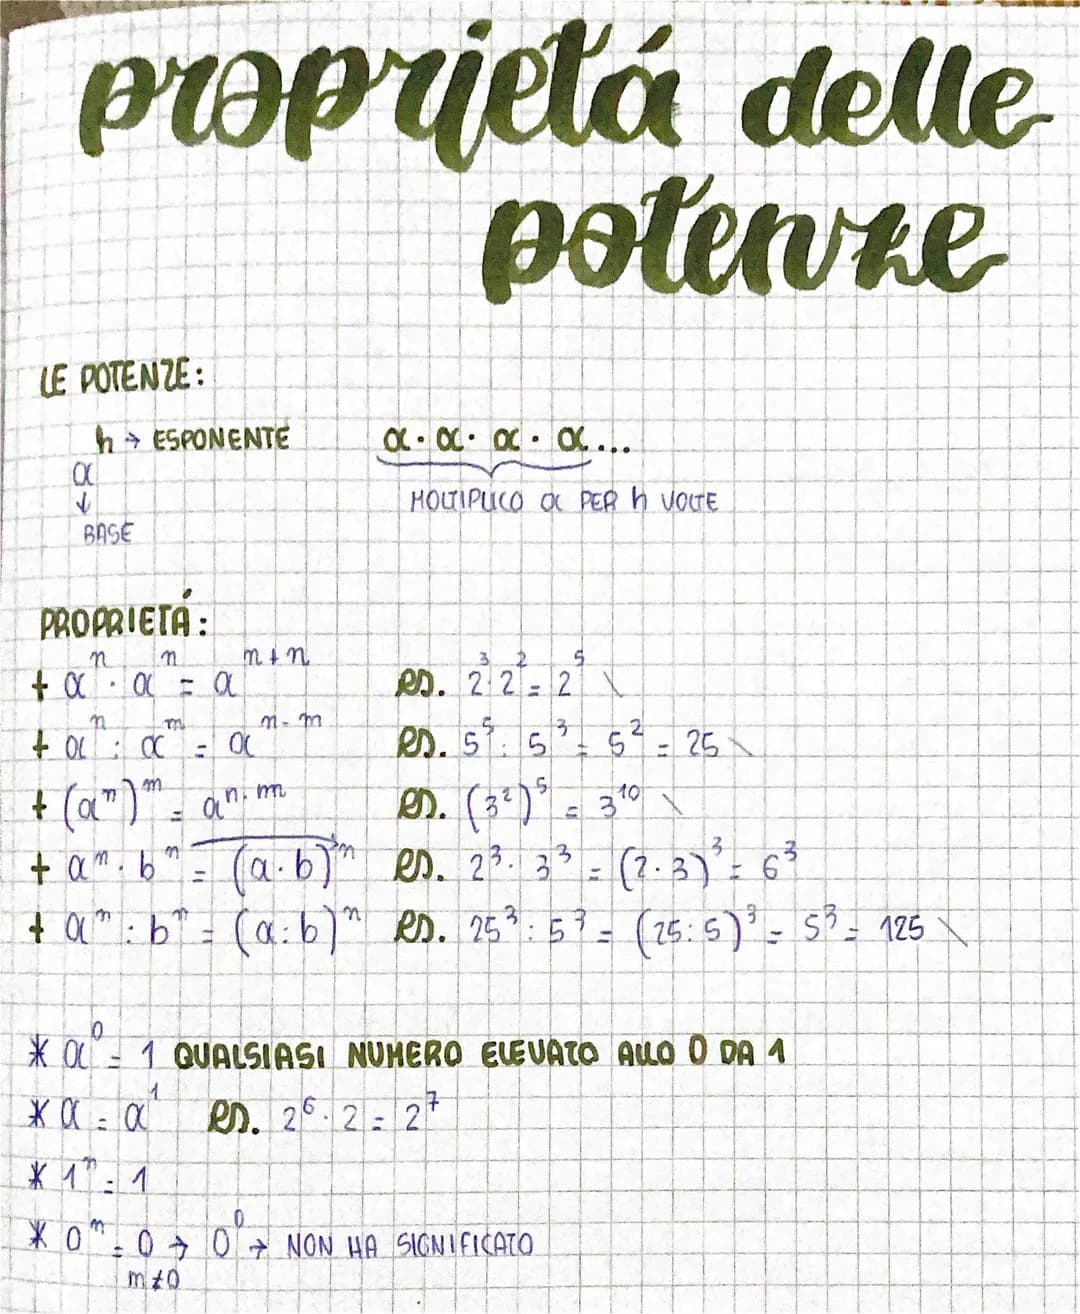 proprietá delle
potenze
LE POTENZE:
h → ESPONENTE
a
↓
BASE
a · a · a · a ...
MOLTIPLICO a PER h VOLTE
PROPRIETÁ:
+ aⁿ · aⁿ = aᵐ⁺ⁿ es. 2³ · 2² = 2⁵ \
+ aⁿ : aᵐ = aⁿ⁻ᵐ es. 5⁵ : 5³ = 5² = 25 \
+ (aⁿ)ᵐ = aⁿ·ᵐ es. (3²)⁵ = 3¹⁰ \
+ aⁿ · bⁿ = (a·b)ⁿ es. 2³ · 3³ = (2·3)³ = 6³
+ aⁿ : bⁿ = (a:b)ⁿ es. 25³ : 5³ = (25:5)³ = 5³ = 125 \
* a⁰ = 1 QUALSIASI NUMERO ELEVATO ALLO 0 DA 1
* a = a¹ es. 2⁶ · 2 = 2⁷
* 1ⁿ = 1
* 0ᵐ = 0 → 0⁰ → NON HA SIGNIFICATO
m≠0